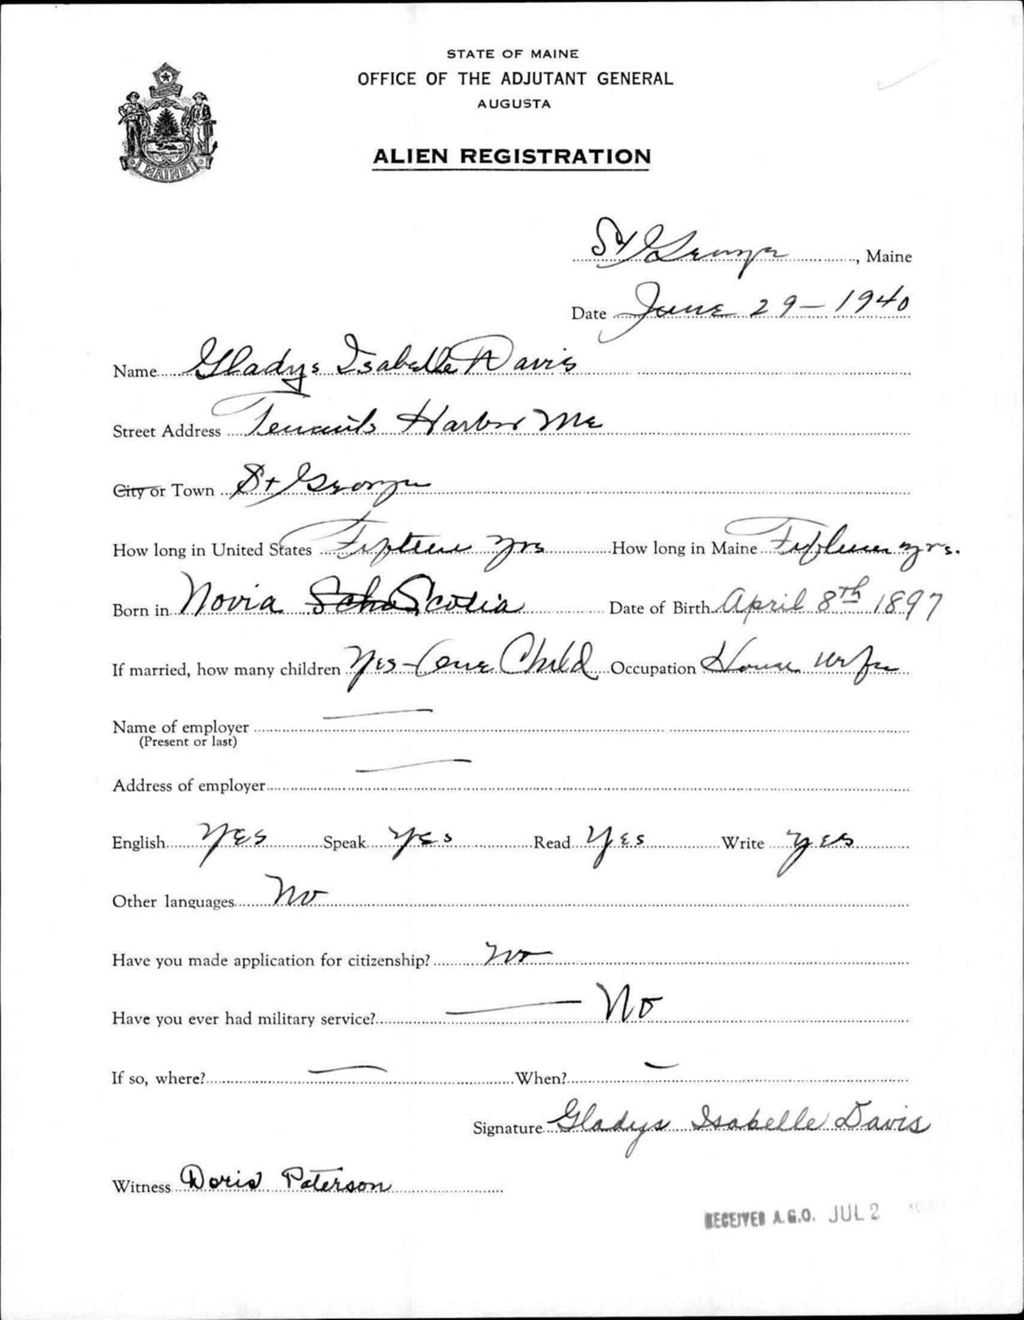 STATE OF MAINE
OFFICE OF THE ADJUTANT GENERAL
AUGUSTA
MAINE
ALIEN REGISTRATION
St George, Maine
Date June 29-1940
Name Gladys Isabelle Davis
Street Address Tenants Harbor Me
City or Town St George
How long in United States Fifteen yrs How long in Maine Fifteen yrs.
Born in Novia Scotia Date of Birth April 8th 1897
If married, how many children Yes-One Child Occupation House wife
Name of employer —
(Present or last)
Address of employer —
English Yes Speak Yes Read Yes Write Yes
Other languages No
Have you made application for citizenship? No
Have you ever had military service? — No
If so, where? — When? —
Signature Gladys Isabelle Davis
Witness Doris Paterson
RECEIVED A.G.O. JUL 2